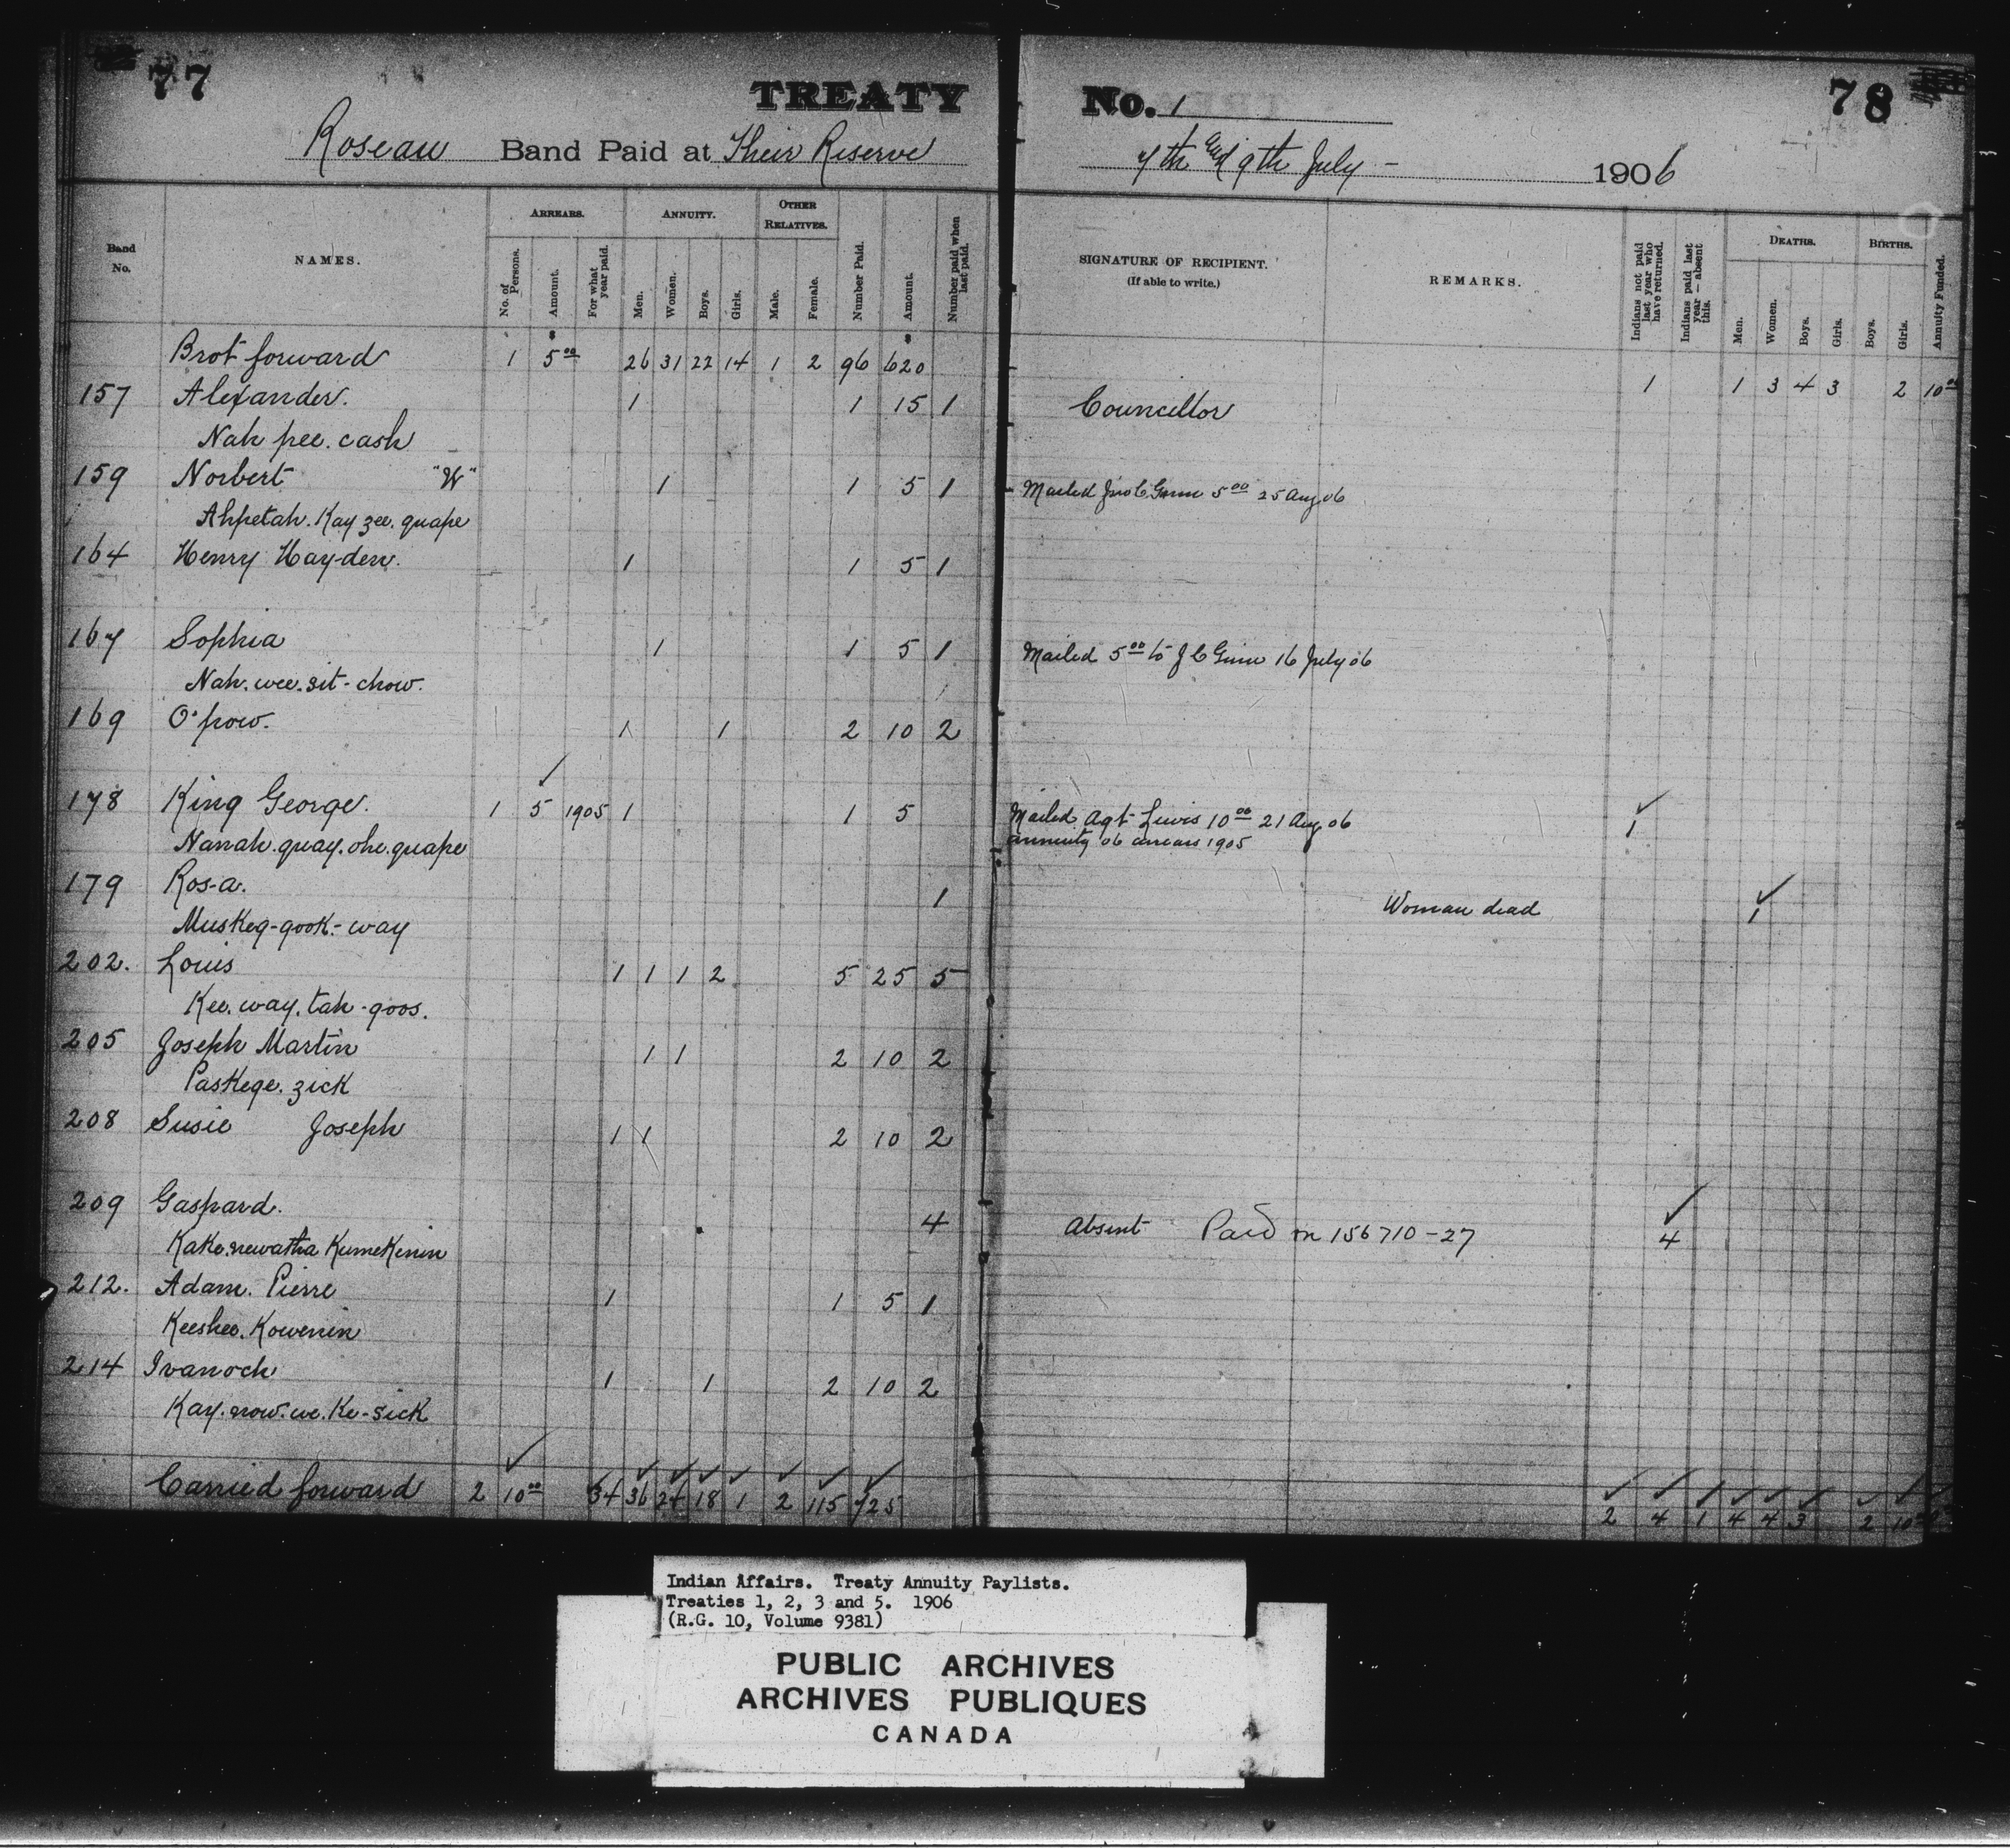 77
TREATY No. 1
78
Roseau Band Paid at Their Reserve
7th and 9th July - 1906
Band No.
NAMES.
ARREARS.
No. of Persons.
Amount.
For what year paid.
ANNUITY.
Men.
Women.
Boys.
Girls.
OTHER RELATIVES.
Male.
Female.
Number Paid.
Amount.
Number paid when last paid.
SIGNATURE OF RECIPIENT.
(If able to write.)
REMARKS.
Indians not paid last year who have returned.
Indians paid last year—absent this.
DEATHS.
Men.
Women.
Boys.
Girls.
BIRTHS.
Boys.
Girls.
Annuity Funded.
Brot forward 1 5.00 26 31 22 14 1 2 96 620 1 1 3 4 3 2 10.00
157 Alexander. 1 1 15 1 Councillor
Nah pee. cash
159 Norbert "W" 1 1 5 1 Mailed 5.00 25 Aug 06
Ahpetah. Kay zee. quape
164 Henry Hayden. 1 1 5 1
167 Sophia 1 1 5 1 Mailed 5.00 to J C Ginn 16 July 06
Nah. wee. sit-chow.
169 O'pow. 1 1 2 10 2
178 King George. 1 5 1905 1 1 5 Mailed Agt Lewis 10.00 21 Aug 06 1
Nanah. quay. ohe. quape annuity 06 arrears 1905
179 Rosa. 1 Woman dead 1
Muskeg-gook-way
202. Louis 1 1 1 2 5 25 5
Kee. way. tah-goos.
205 Joseph Martin 1 1 2 10 2
Paskege. zick
208 Susie Joseph 1 1 2 10 2
209 Gaspard. 4 Absent Paid on 156710-27 4
Kake. newatha Kumekenin
212. Adam. Pierre 1 1 5 1
Keeshee. Kowenin
214 Ivanoch 1 1 2 10 2
Kay. now. we. Ke-sick
Carried forward 2 10.00 34 36 24 18 1 2 115 725 2 4 1 4 4 3 2 10
Indian Affairs. Treaty Annuity Paylists.
Treaties 1, 2, 3 and 5. 1906
(R.G. 10, Volume 9381)
PUBLIC ARCHIVES
ARCHIVES PUBLIQUES
CANADA